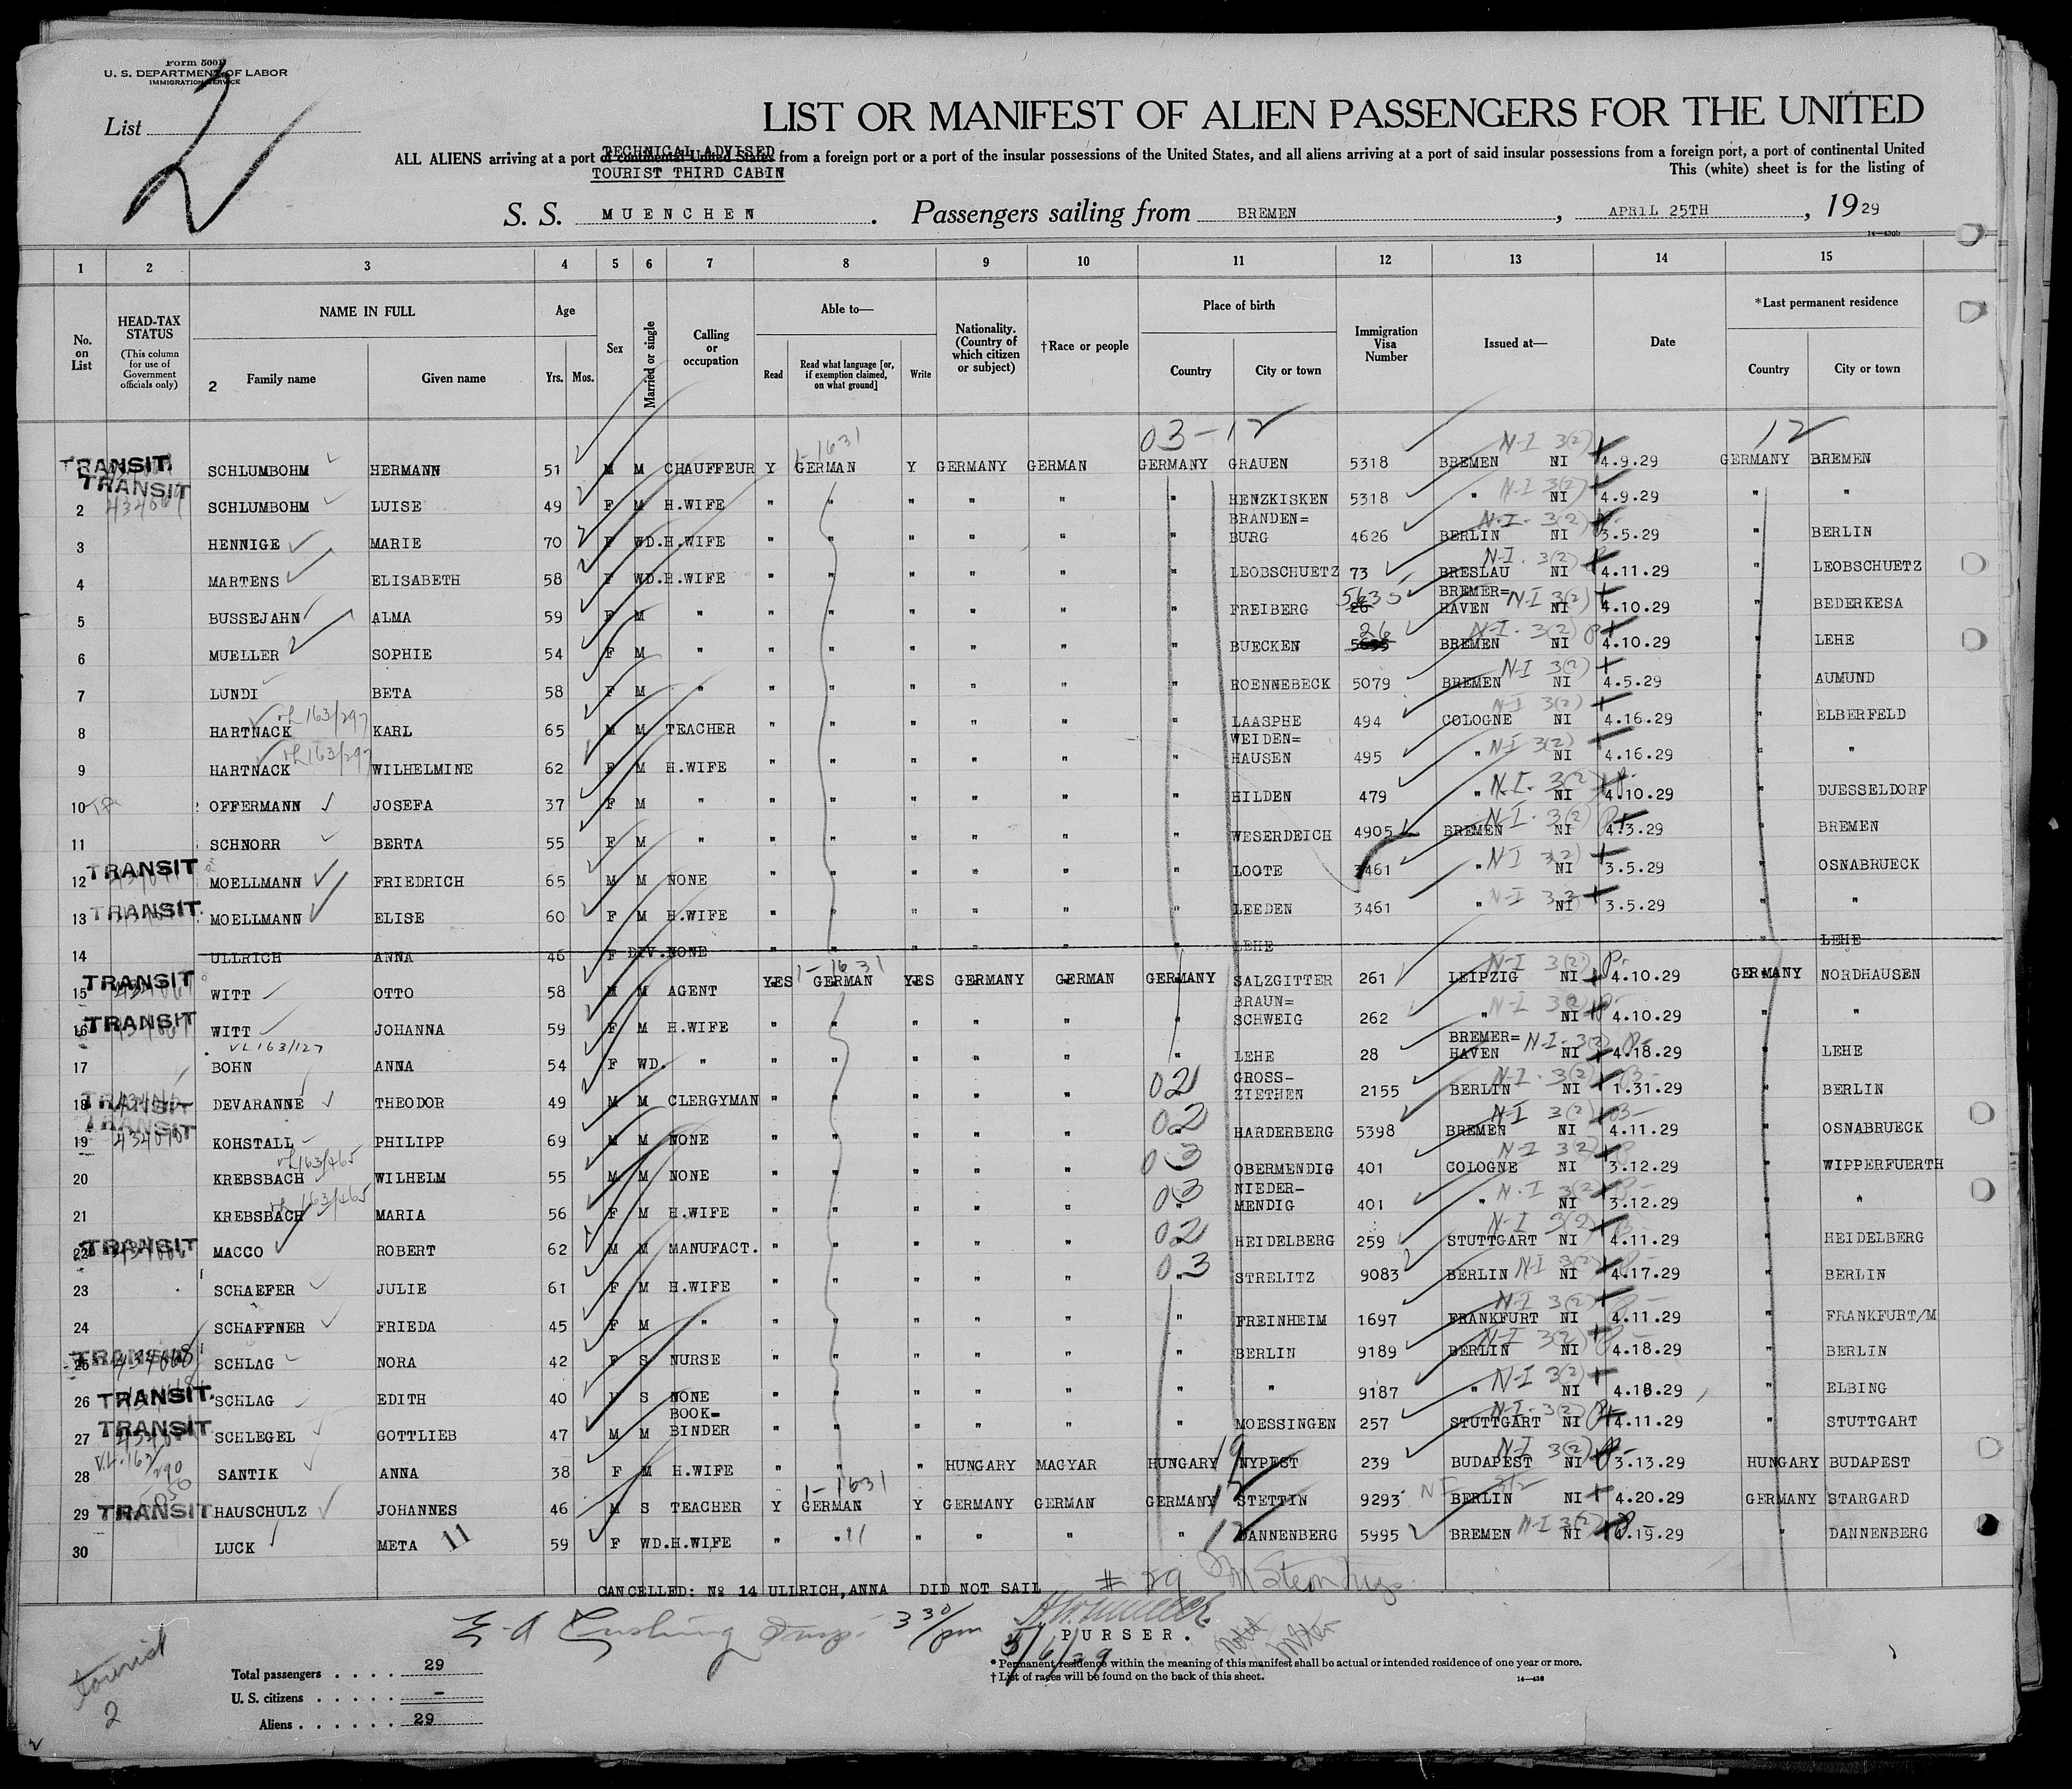 Form 500B
U. S. DEPARTMENT OF LABOR
IMMIGRATION SERVICE
List 2
LIST OR MANIFEST OF ALIEN PASSENGERS FOR THE UNITED
TECHNICAL ADVISED
ALL ALIENS arriving at a port of continental United States from a foreign port or a port of the insular possessions of the United States, and all aliens arriving at a port of said insular possessions from a foreign port, a port of continental United
TOURIST THIRD CABIN
This (white) sheet is for the listing of
S. S. MUENCHEN. Passengers sailing from BREMEN, APRIL 25TH, 1929
14—430b
1 2 3 4 5 6 7 8 9 10 11 12 13 14 15
No. on List
HEAD-TAX STATUS (This column for use of Government officials only)
NAME IN FULL
2 Family name Given name
Age Yrs. Mos.
Sex
Married or single
Calling or occupation
Able to— Read Read what language [or, if exemption claimed, on what ground] Write
Nationality. (Country of which citizen or subject)
†Race or people
Place of birth Country City or town
Immigration Visa Number
Issued at—
Date
*Last permanent residence Country City or town
03-12 12
TRANSIT. SCHLUMBOHM HERMANN 51 M M CHAUFFEUR Y GERMAN 1-1631 Y GERMANY GERMAN GERMANY GRAUEN 5318 BREMEN NI N-I 3(2) 4.9.29 GERMANY BREMEN
TRANSIT 2 SCHLUMBOHM LUISE 49 F M H.WIFE " " " " " " HENZKISKEN 5318 " NI N-I 3(2) 4.9.29 " "
3 HENNIGE MARIE 70 F WD. H.WIFE " " " " " " BRANDEN=BURG 4626 BERLIN NI N-I 3(2) 3.5.29 " BERLIN
4 MARTENS ELISABETH 58 F WD. H.WIFE " " " " " " LEOBSCHUETZ 73 BRESLAU NI N-I 3(2) 4.11.29 " LEOBSCHUETZ
5 BUSSEJAHN ALMA 59 F M " " " " " " " FREIBERG 26 5635 BREMER=HAVEN NI N-I 3(2) 4.10.29 " BEDERKESA
6 MUELLER SOPHIE 54 F M " " " " " " " BUECKEN 26 BREMEN NI N-I 3(2) 4.10.29 " LEHE
7 LUNDI BETA 58 F M " " " " " " " ROENNEBECK 5079 BREMEN NI N-I 3(2) 4.5.29 " AUMUND
8 HARTNACK 163/297 KARL 65 M M TEACHER " " " " " " LAASPHE 494 COLOGNE NI N-I 3(2) 4.16.29 " ELBERFELD
9 HARTNACK 163/297 WILHELMINE 62 F M H.WIFE " " " " " " WEIDEN=HAUSEN 495 " NI N-I 3(2) 4.16.29 " "
10 OFFERMANN JOSEFA 37 F M " " " " " " " HILDEN 479 " NI N-I 3(2) 4.10.29 " DUESSELDORF
11 SCHNORR BERTA 55 F M " " " " " " " WESERDEICH 4905 BREMEN NI N-I 3(2) 4.3.29 " BREMEN
12 TRANSIT MOELLMANN FRIEDRICH 65 M M NONE " " " " " " LOOTE 3461 " NI N-I 3(2) 3.5.29 " OSNABRUECK
13 TRANSIT. MOELLMANN ELISE 60 F M H.WIFE " " " " " " LEEDEN 3461 " NI N-I 3.5.29 " "
14 ULLRICH ANNA 46 F DIV. NONE " " " " " " LEHE " LEHE
15 TRANSIT WITT OTTO 58 M M AGENT YES GERMAN 1-1631 YES GERMANY GERMAN GERMANY SALZGITTER 261 LEIPZIG NI N-I 3(2) 4.10.29 GERMANY NORDHAUSEN
16 TRANSIT WITT JOHANNA 59 F M H.WIFE " " " " " " BRAUN=SCHWEIG 262 " NI N-I 3(2) 4.10.29 " "
17 VL163/127 BOHN ANNA 54 F WD. " " " " " " " LEHE 28 BREMER=HAVEN NI N-I 3(2) 4.18.29 " LEHE
18 TRANSIT DEVARANNE THEODOR 49 M M CLERGYMAN " " " " " 02 GROSS-ZIETHEN 2155 BERLIN NI N-I 3(2) 1.31.29 " BERLIN
19 TRANSIT 434070 KOHSTALL PHILIPP 69 M M NONE " " " " " 02 HARDERBERG 5398 BREMEN NI N-I 3(2) 4.11.29 " OSNABRUECK
20 KREBSBACH 163/465 WILHELM 55 M M NONE " " " " " 03 OBERMENDIG 401 COLOGNE NI N-I 3(2) 3.12.29 " WIPPERFUERTH
21 KREBSBACH 163/465 MARIA 56 F M H.WIFE " " " " " 03 NIEDER-MENDIG 401 " NI N-I 3(2) 3.12.29 " "
22 TRANSIT MACCO ROBERT 62 M M MANUFACT. " " " " " 02 HEIDELBERG 259 STUTTGART NI N-I 3(2) 4.11.29 " HEIDELBERG
23 SCHAEFER JULIE 61 F M H.WIFE " " " " " 03 STRELITZ 9083 BERLIN NI N-I 3(2) 4.17.29 " BERLIN
24 SCHAFFNER FRIEDA 45 F M " " " " " " " FREINHEIM 1697 FRANKFURT NI N-I 3(2) 4.11.29 " FRANKFURT/M
25 TRANSIT 434068 SCHLAG NORA 42 F S NURSE " " " " " " BERLIN 9189 BERLIN NI N-I 3(2) 4.18.29 " BERLIN
26 TRANSIT. SCHLAG EDITH 40 F S NONE " " " " " " " 9187 " NI N-I 3(2) 4.18.29 " ELBING
27 TRANSIT SCHLEGEL GOTTLIEB 47 M M BOOK=BINDER " " " " " " MOESSINGEN 257 STUTTGART NI N-I 3(2) 4.11.29 " STUTTGART
28 SANTIK ANNA 38 F M H.WIFE " " " HUNGARY MAGYAR HUNGARY 19 NYPEST 239 BUDAPEST NI N-I 3(2) 3.13.29 HUNGARY BUDAPEST
29 TRANSIT HAUSCHULZ JOHANNES 46 M S TEACHER Y GERMAN 1-1631 Y GERMANY GERMAN GERMANY 12 STETTIN 9293 BERLIN NI 4.20.29 GERMANY STARGARD
30 LUCK META 11 59 F WD. H.WIFE " " 11 " " " " 12 DANNENBERG 5995 BREMEN NI N-I 3(2) 4.19.29 " DANNENBERG
CANCELLED: No 14 ULLRICH,ANNA DID NOT SAIL
# 29
E-A Cushing Insp. 3 30/pm
PURSER.
5/6/29
tourist
2
Total passengers . . . . 29
U. S. citizens . . . . . –
Aliens . . . . . . 29
* Permanent residence within the meaning of this manifest shall be actual or intended residence of one year or more.
† List of races will be found on the back of this sheet.
14—430